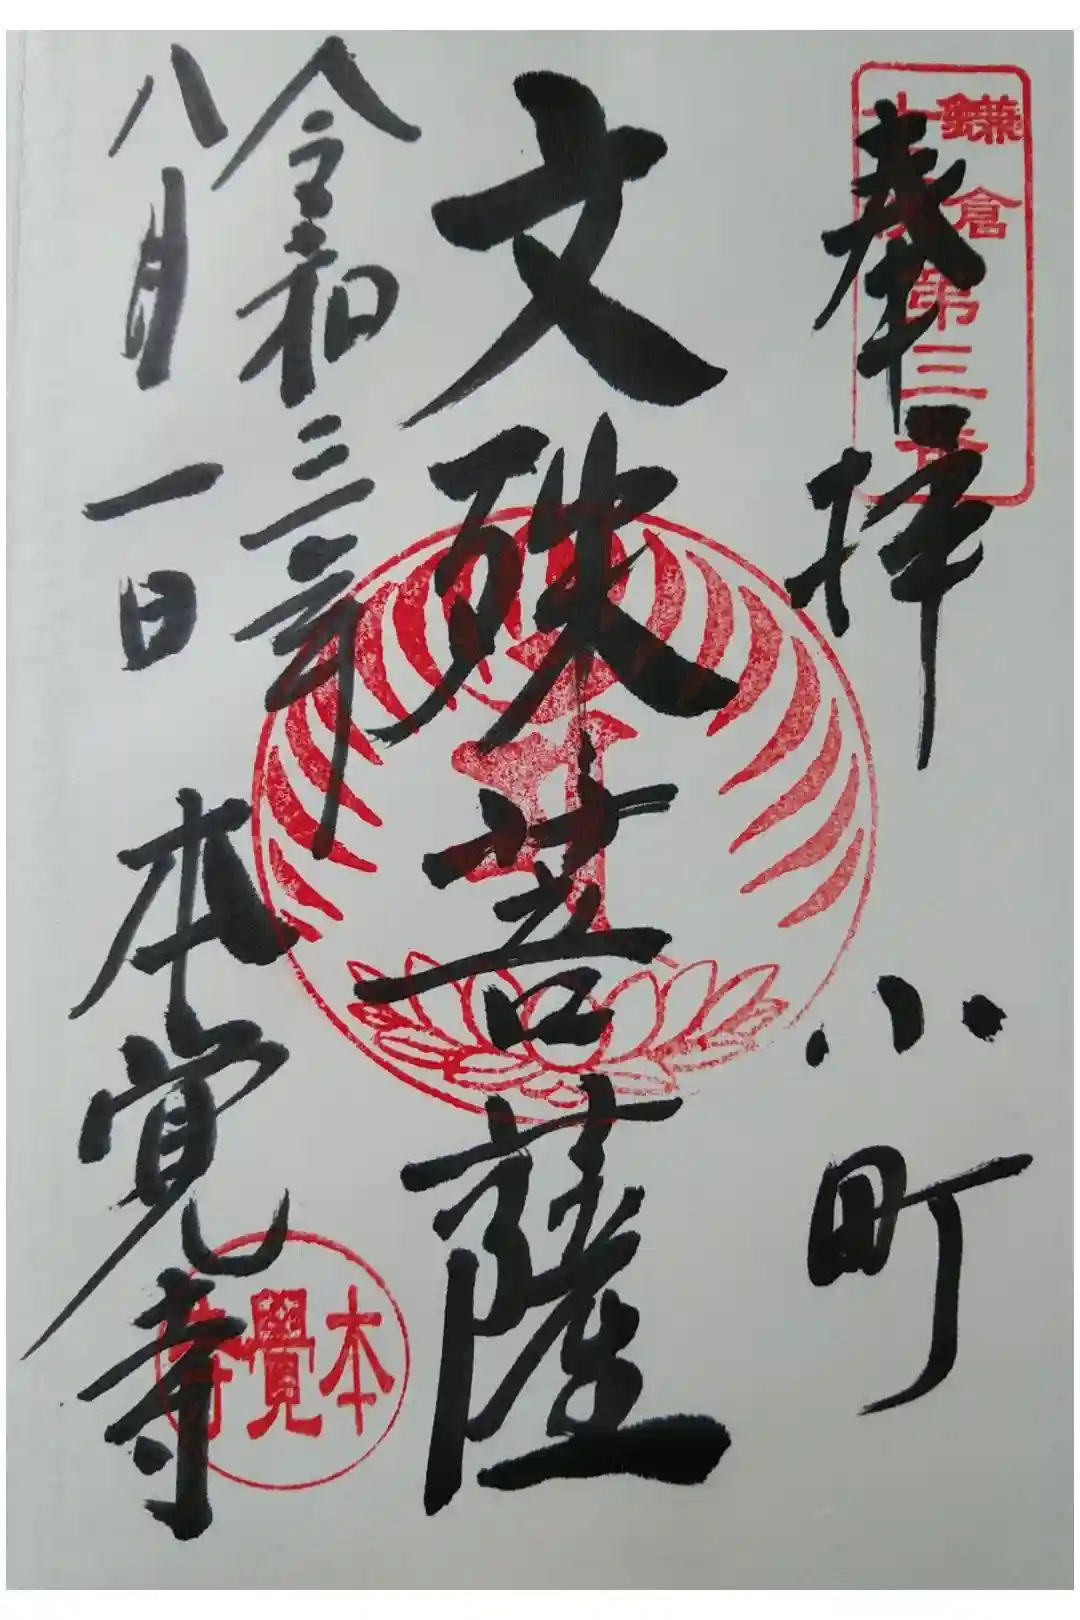 鎌倉十三佛第三番
奉拝
小町
文殊菩薩
令和三年
八月一日
本覚寺
本覺寺